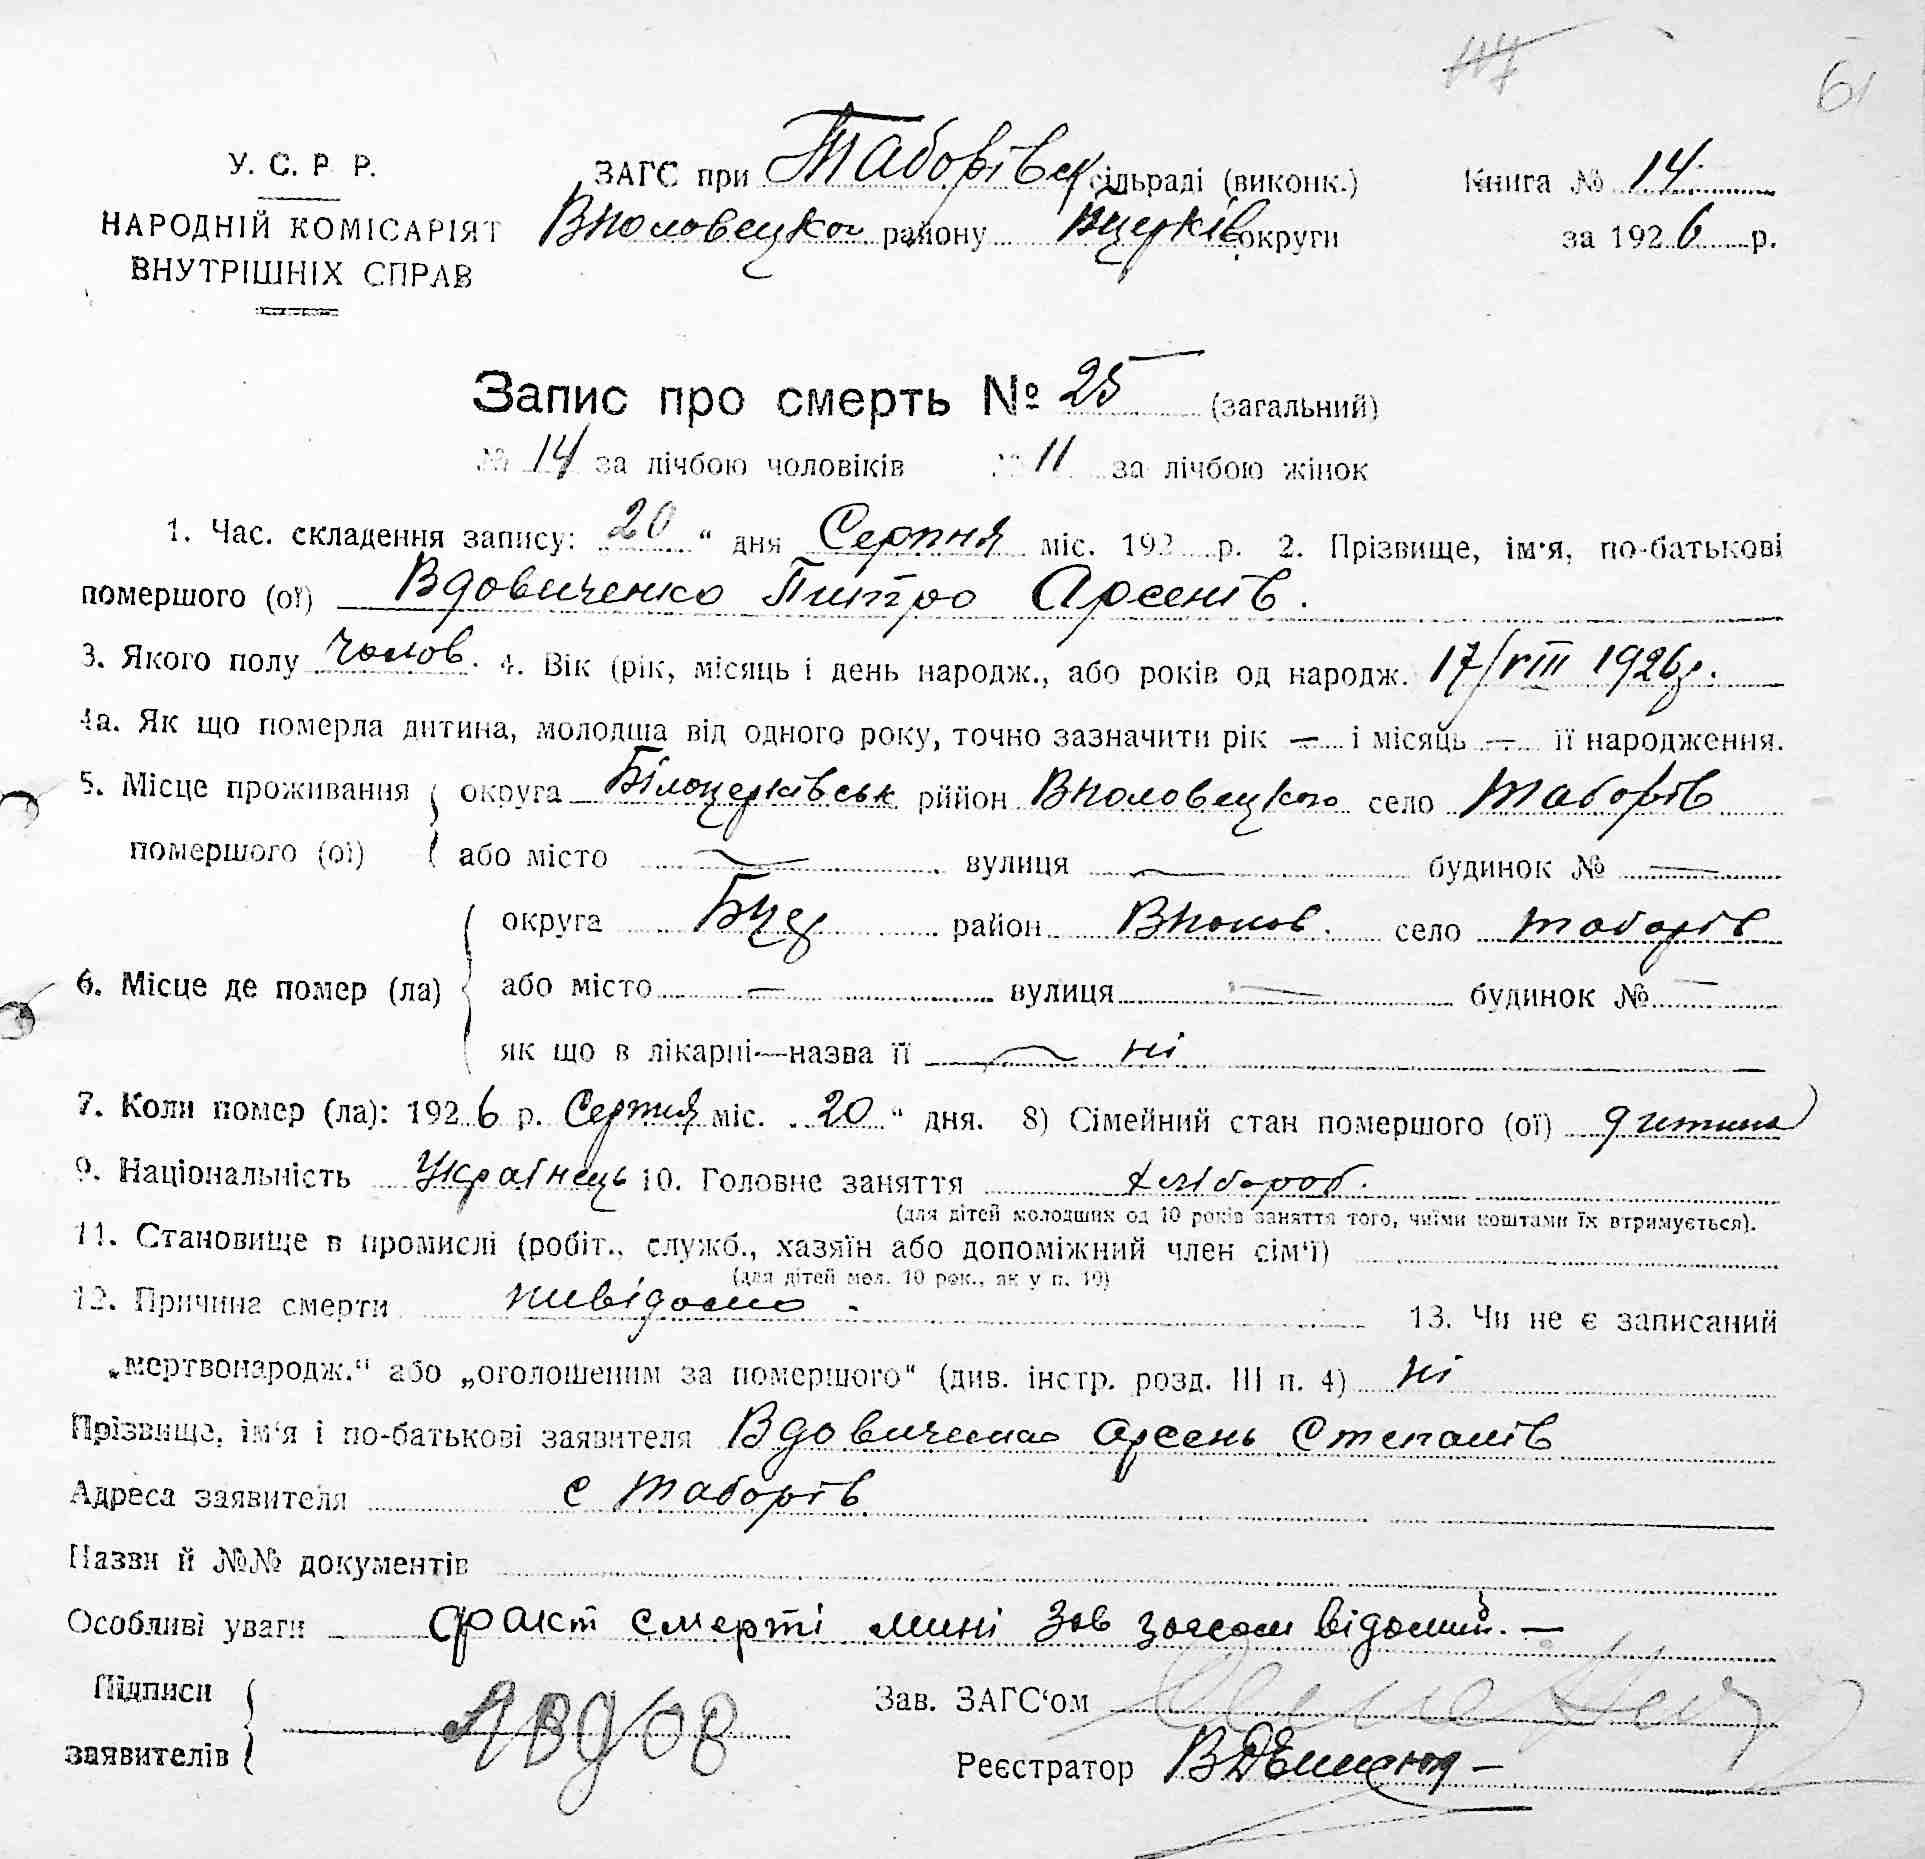 61
У. С. Р Р.
ЗАГС при Таборівск сільраді (виконк.)
Книга № 14
НАРОДНІЙ КОМІСАРІЯТ
Вполовецког району Бцерків округи
за 1926 р.
ВНУТРІШНІХ СПРАВ
Запис про смерть № 25 (загальний)
№ 14 за лічбою чоловіків № 11 за лічбою жінок
1. Час. складення запису: 20 " дня Серпня міс. 192 р. 2. Прізвище, ім'я, по-батькові
помершого (ої) Вдовиченко Питро Арсенів.
3. Якого полу Чолов. 4. Вік (рік, місяць і день народж., або років од народж. 17/VIII 1926 р.
4а. Як що померла дитина, молодша від одного року, точно зазначити рік — і місяць — її народження.
5. Місце проживання округа Білоцерківськ рййон Вполовецкого село Таборів
помершого (ої) або місто — вулиця — будинок № —
округа Бцер район Вполов. село Таборів
6. Місце де помер (ла) або місто — вулиця — будинок № —
як що в лікарні—назва її — ні
7. Коли помер (ла): 1926 р. Серпня міс. 20 " дня. 8) Сімейний стан помершого (ої) дитина
9. Національність Українець 10. Головне заняття хлібороб.
(для дітей молодших од 10 років заняття того, чиїми коштами їх втримується).
11. Становище в промислі (робіт., служб., хазяїн або допоміжний член сім'ї)
(для дітей мол. 10 рок., як у п. 10)
12. Причина смерти нивідомо. 13. Чи не є записаний
„мертвонародж." або „оголошеним за помершого" (див. інстр. розд. III п. 4) ні
Прізвище, ім'я і по-батькові заявителя Вдовиченко Арсень Степанів
Адреса заявителя с Таборів
Назви й №№ документів
Особливі уваги факт смерті мині Зав загсом відомий. —
Підписи
Зав. ЗАГС'ом
заявителів
Реєстратор